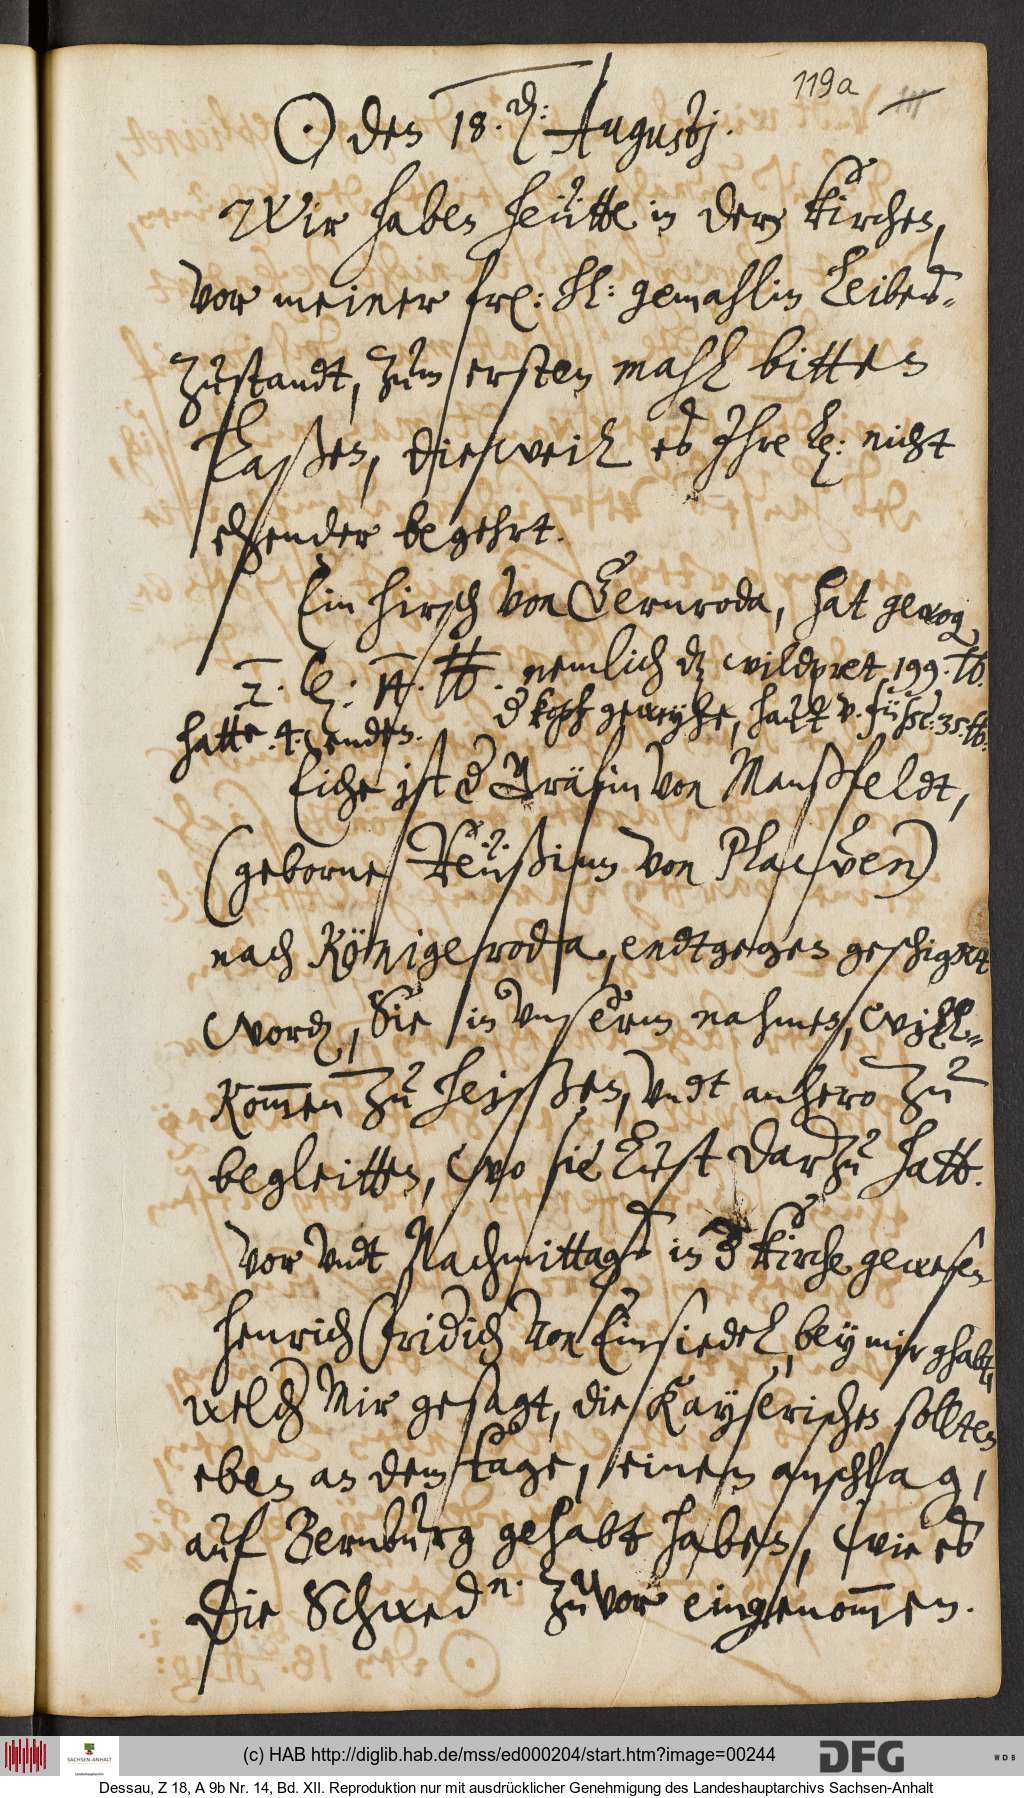 119a
⊙ den 18. d: Augustj.
Wir haben heütte in der kirchen,
vor meiner frl: hl: gemahlin Leibes-
zustandt, zum ersten mahl bitten
laßen, dieweil es Jhre L: nicht
ehender begehrt.
Ein hirsch von Gernroda, hat gewog
2. C: 14. lb. nemlich dz wildpret 199. lb.
hatte .4. enden. d kopf geweyhe, hautt v. füße: 35. lb.
Eiche ist d Gräfin von Manßfeldt,
(geborne Reüßinn von Plawen)
nach Königeroda, endtgegen geschigktt
word, Sie in unserm nahmen, will-
kom̅en zu heissen, undt anhero zu
begleitten, wo sie Lust darzu hatt.
Vor undt Nachmittags in d kirche gewesen
Henrich Fridich von Einsiedel, bey mir ghabt,
welch Mir gesagt, die Kayserischen sollten
eben an dem tage, einen anschlag,
auf Bernburg gehabt haben, wie es
Die Schwedn. zuvor eingenom̅en.
(c) HAB http://diglib.hab.de/mss/ed000204/start.htm?image=00244
SACHSEN-ANHALT
DFG
WDB
Dessau, Z 18, A 9b Nr. 14, Bd. XII. Reproduktion nur mit ausdrücklicher Genehmigung des Landeshauptarchivs Sachsen-Anhalt